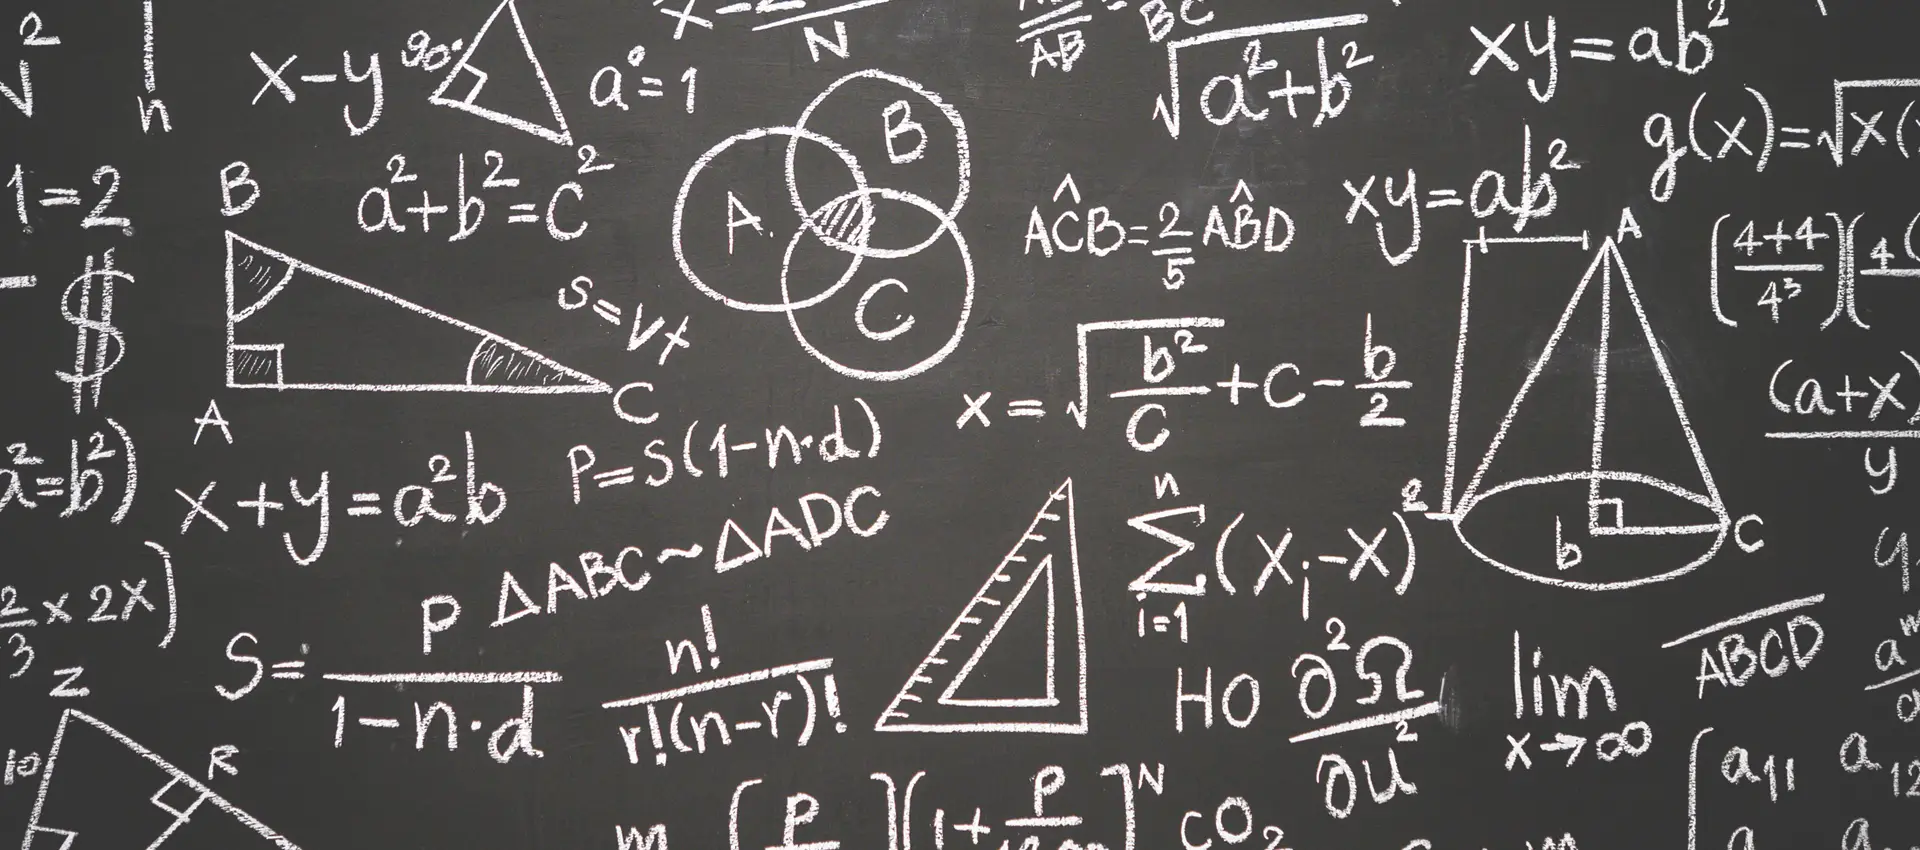 √²
n
x-y
90°
a°=1
N
AB
BC
√a²+b²
xy=ab²
g(x)=√x(
1=2
B
a²+b²=c²
A
B
C
AĈB=2/5 AB̂D
xy=ab²
A
(4+4/4³)(4
$
S=Vt
A
C
x=√b²/C+C-b/2
(a+x)
y
a²=b²)
x+y=a²b
P=S(1-n·d)
ΔABC~ΔADC
n
Σ(Xi-X)²
i=1
b
C
2/3 x 2x)
S=P/1-n·d
n!/r!(n-r)!
HO
∂²Ω/∂u²
lim
x→∞
ABCD
aᵐ
z
10
R
m
[P
][1+P
]ᴺ
CO₂
a₁₁ a₁₂